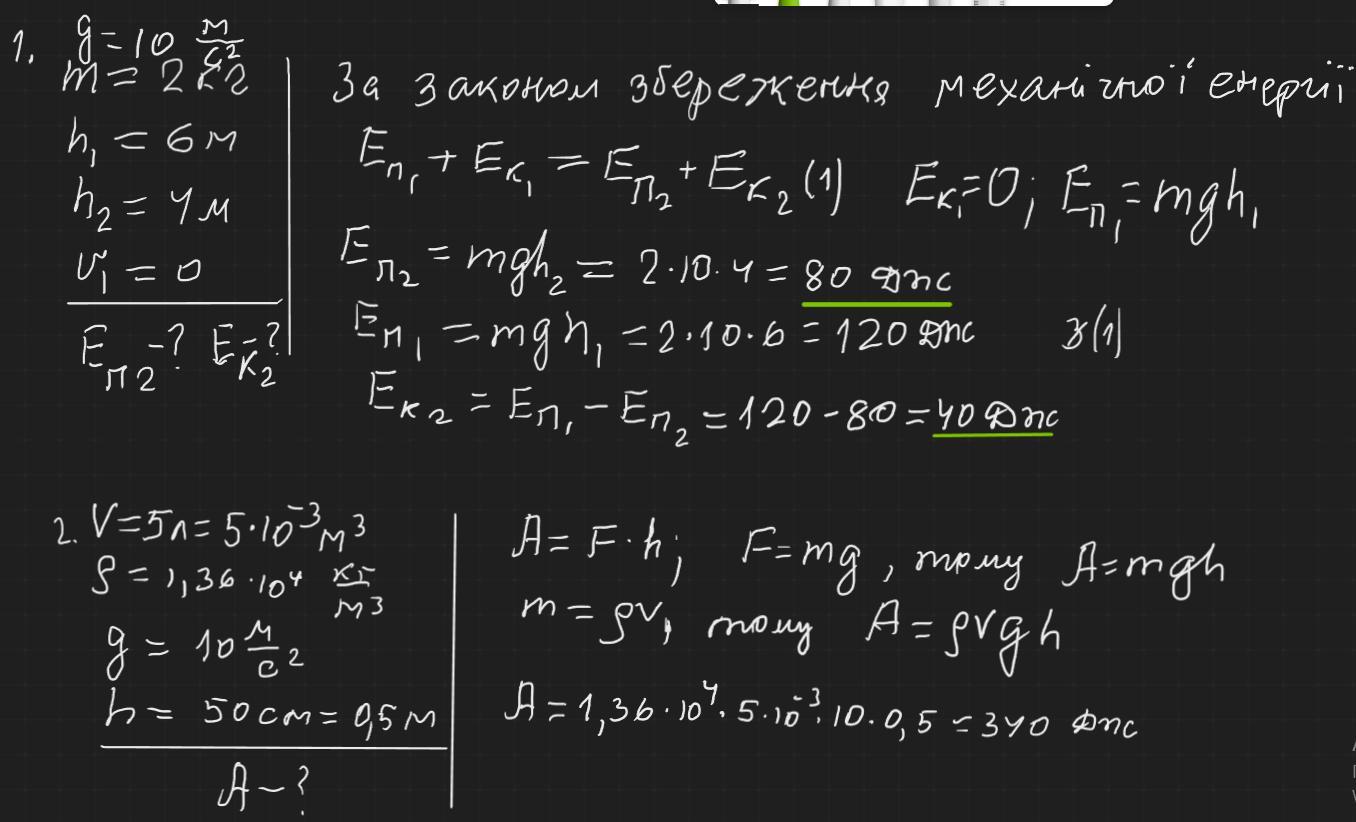 1. g = 10 м/с²
m = 2 кг
h₁ = 6 м
h₂ = 4 м
v₁ = 0
Eп2 - ? Eк2 - ?
За законом збереження механічної енергії
Eп₁ + Eк₁ = Eп₂ + Eк₂ (1) Eк₁ = 0; Eп₁ = mgh₁
Eп2 = mgh₂ = 2·10·4 = 80 Дж
Eп₁ = mgh₁ = 2·10·6 = 120 Дж З(1)
Eк2 = Eп₁ - Eп₂ = 120 - 80 = 40 Дж
2. V = 5л = 5·10⁻³ м³
ρ = 1,36·10⁴ кг/м³
g = 10 м/с²
h = 50 см = 0,5 м
A - ?
A = F·h; F = mg, тому A = mgh
m = ρV, тому A = ρVgh
A = 1,36·10⁴·5·10⁻³·10·0,5 = 340 Дж